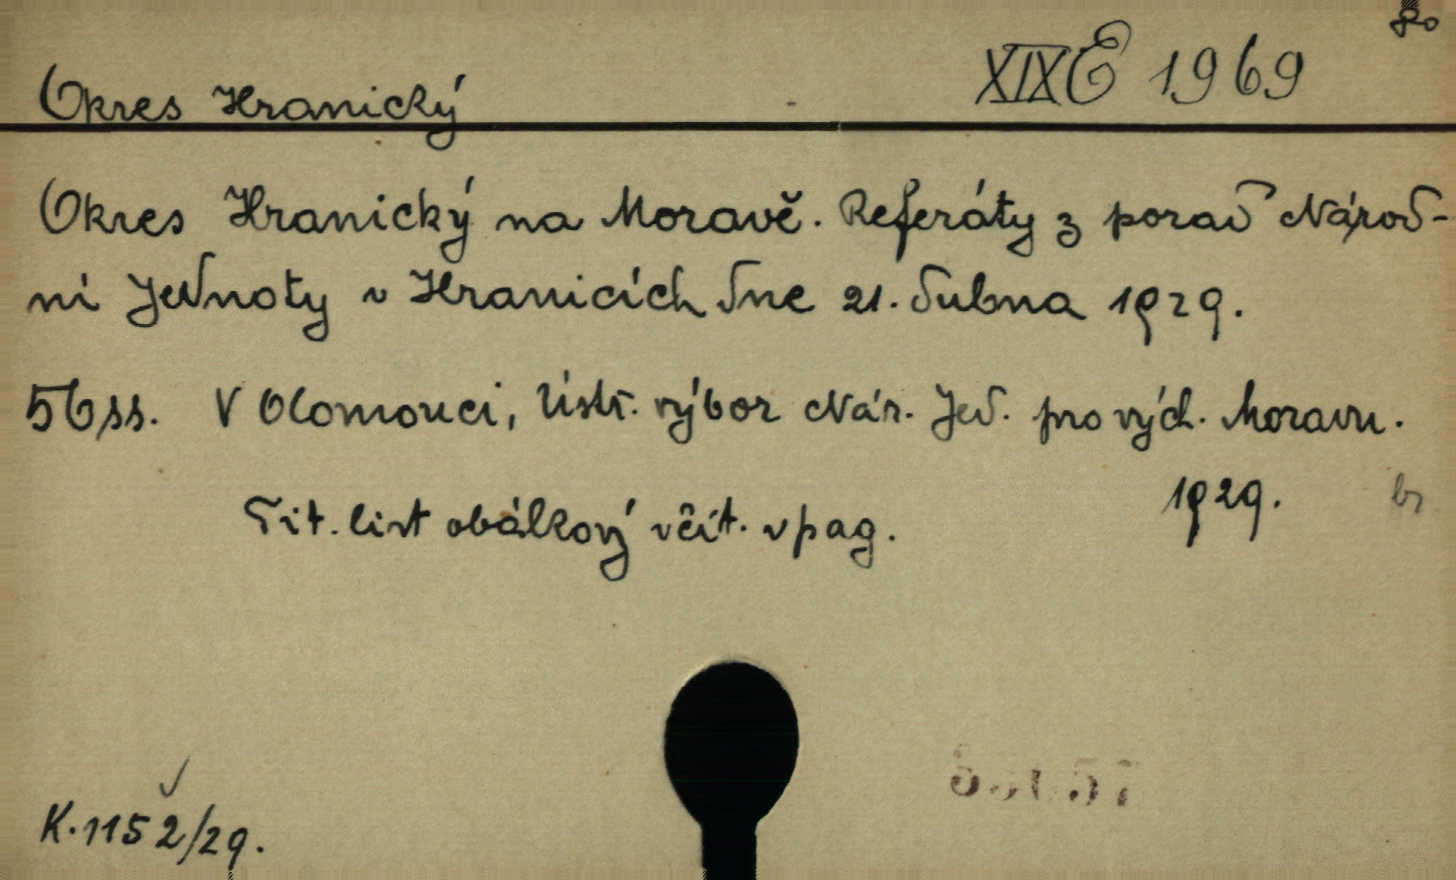 8o
XIX E 1969
Okres Hranický
Okres Hranický na Moravě. Referáty z porad Národ-
ní Jednoty v Hranicích dne 21. dubna 1929.
56 ss. V Olomouci, Ústř. výbor Nár. Jed. pro vých. Moravu.
1929. br
Tit. list obálkový včít. v pag.
K.1152/29.